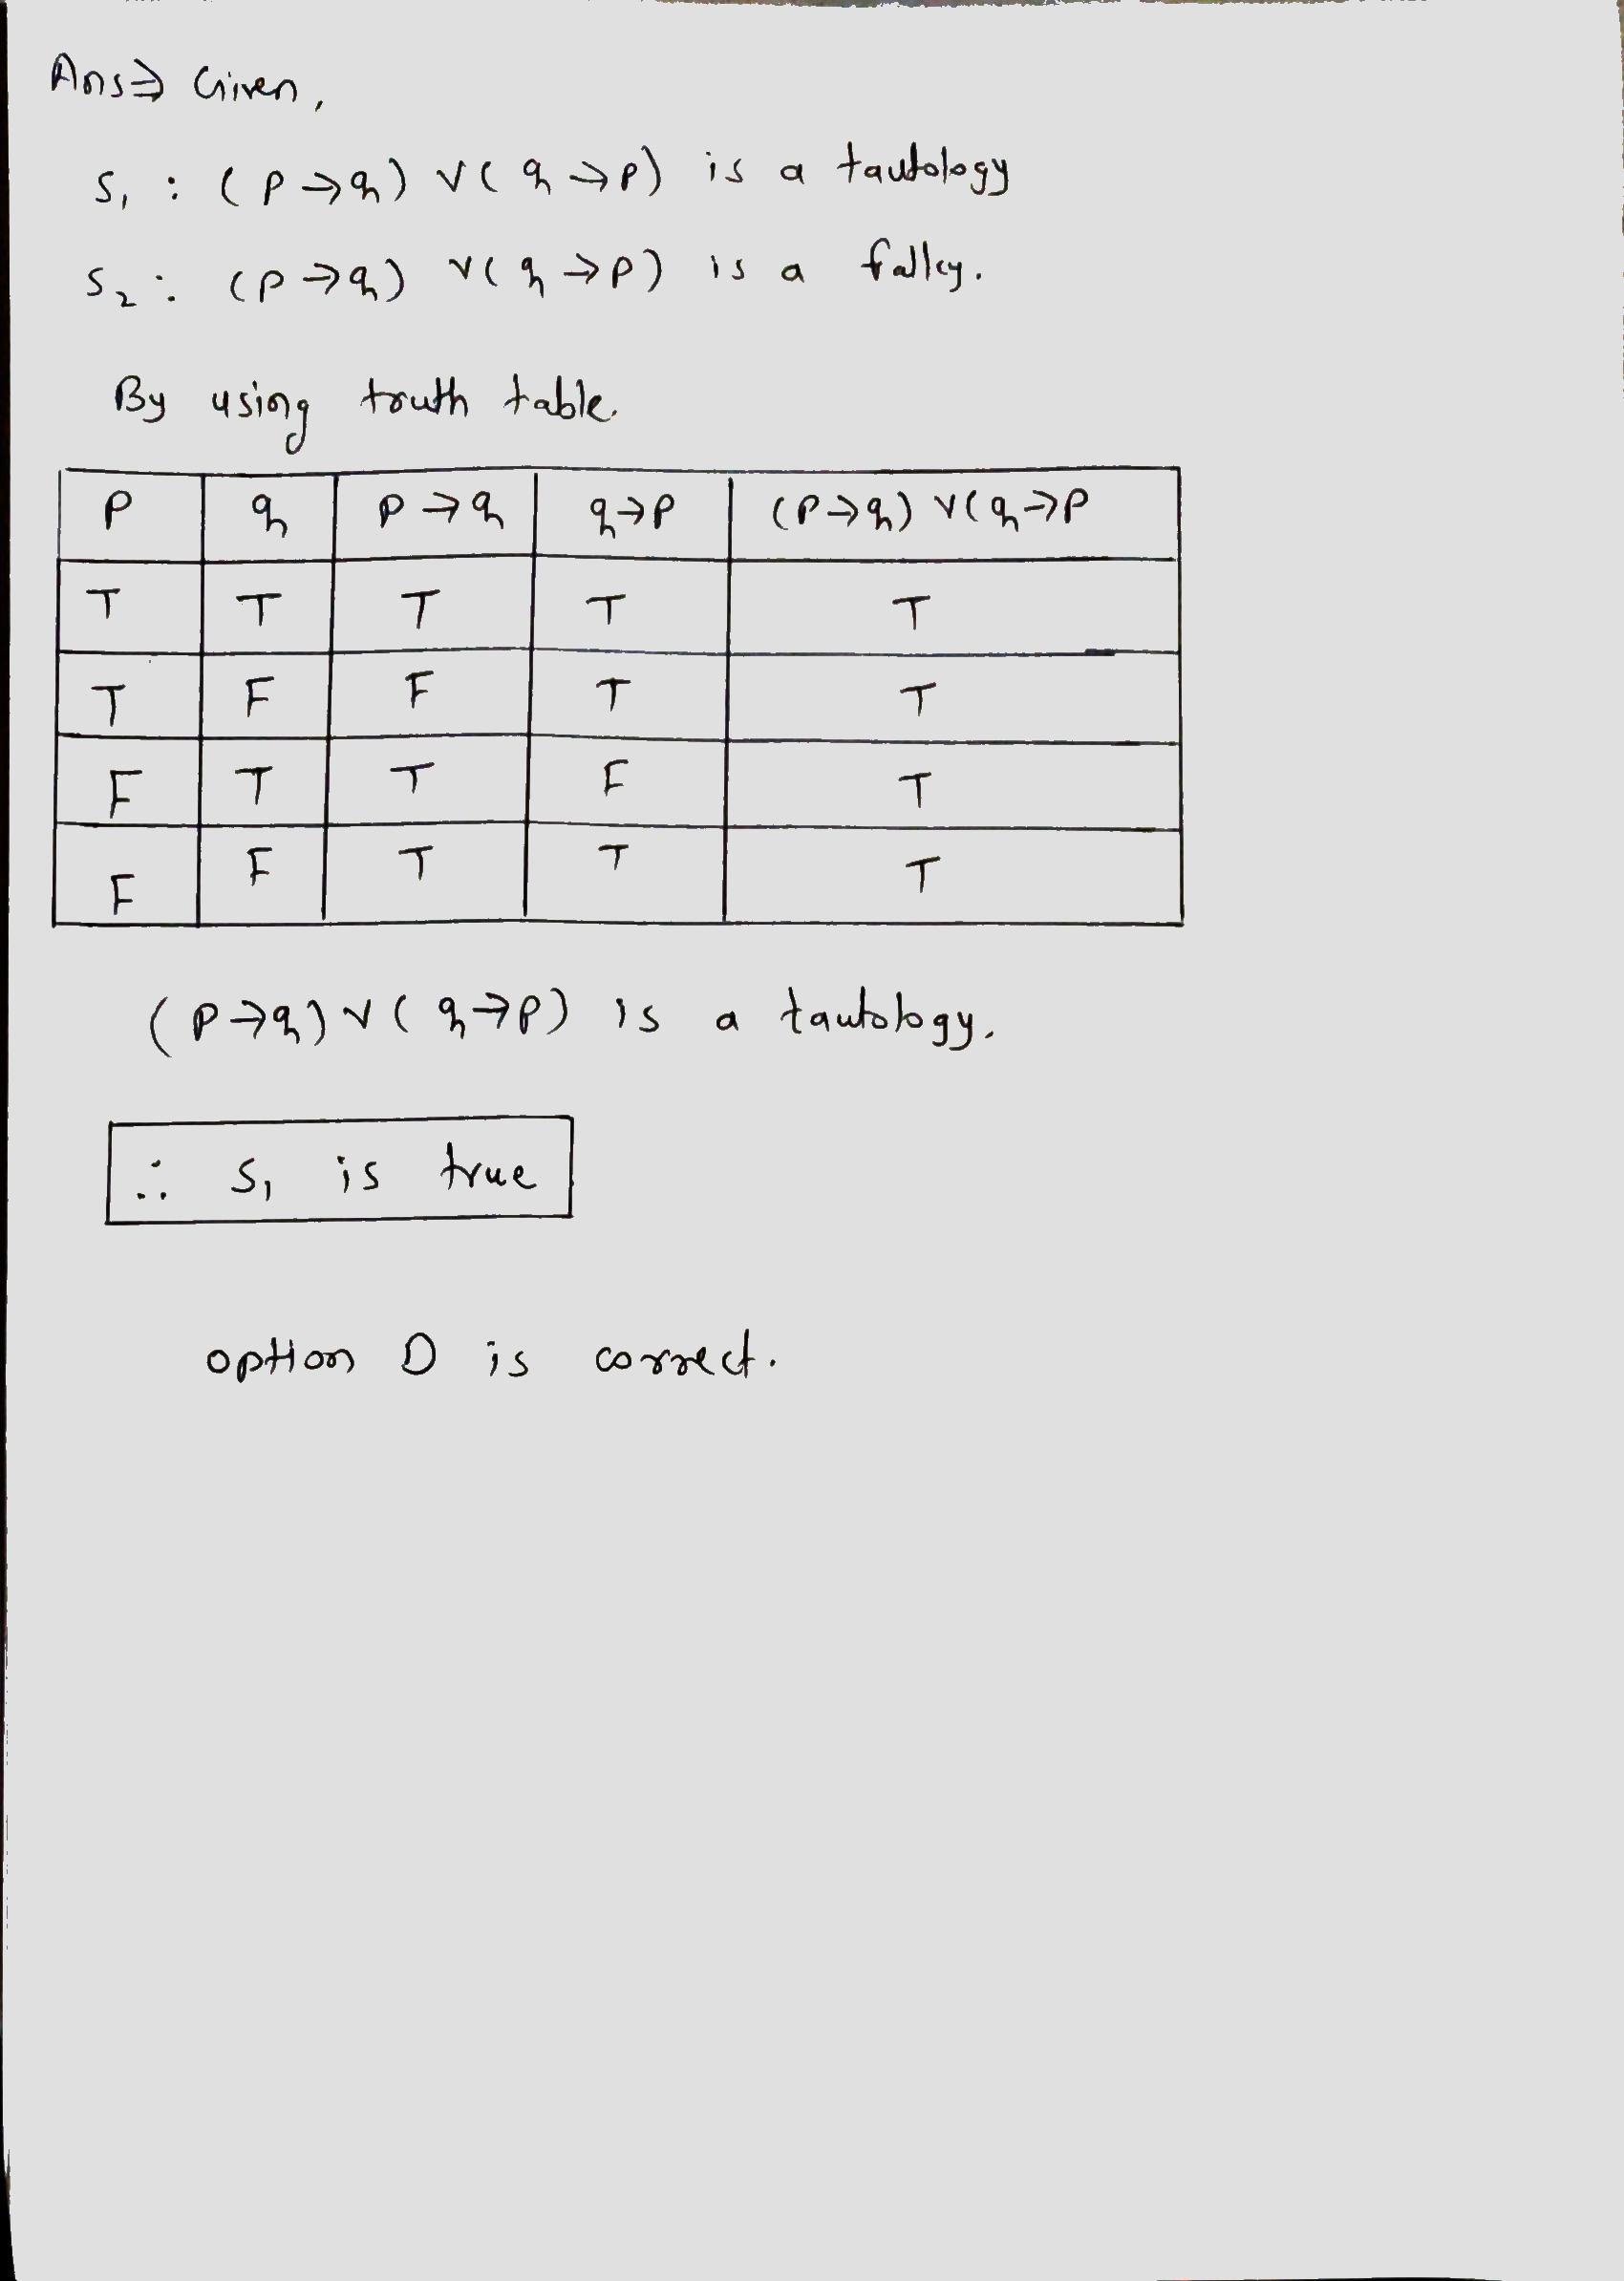 Ans⇒ Given,
S₁ : (P→q) ∨ (q→P) is a tautology
S₂ : (P→q) ∨ (q→P) is a fallcy.
By using truth table.
P q P→q q→P (P→q) ∨ (q→P
T T T T T
T F F T T
F T T F T
F F T T T
(P→q) ∨ (q→P) is a tautology.
∴ S₁ is true
option D is correct.